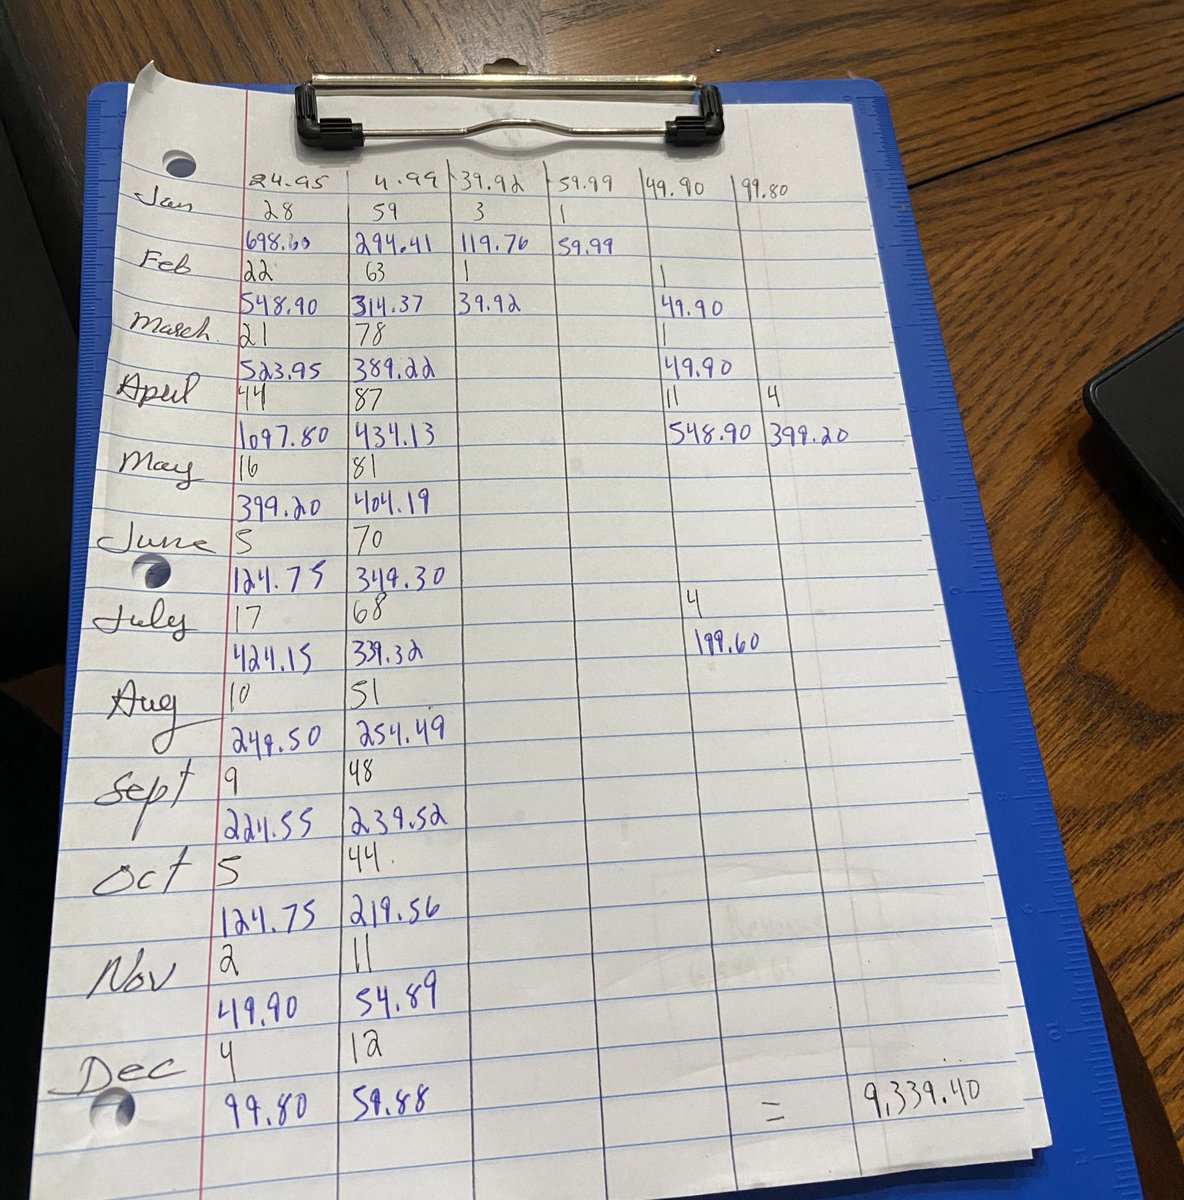 24.95 4.99 39.92 59.99 49.90 99.80
Jan 28 59 3 1
698.60 294.41 119.76 59.99
Feb 22 63 1 1
548.90 314.37 39.92 49.90
March 21 78 1
523.95 389.22 49.90
April 44 87 11 4
1097.80 434.13 548.90 399.20
May 16 81
399.20 404.19
June 5 70
124.75 349.30
July 17 68 4
424.15 339.32 199.60
Aug 10 51
249.50 254.49
Sept 9 48
224.55 239.52
Oct 5 44
124.75 219.56
Nov 2 11
49.90 54.89
Dec 4 12
99.80 59.88 = 9,339.40